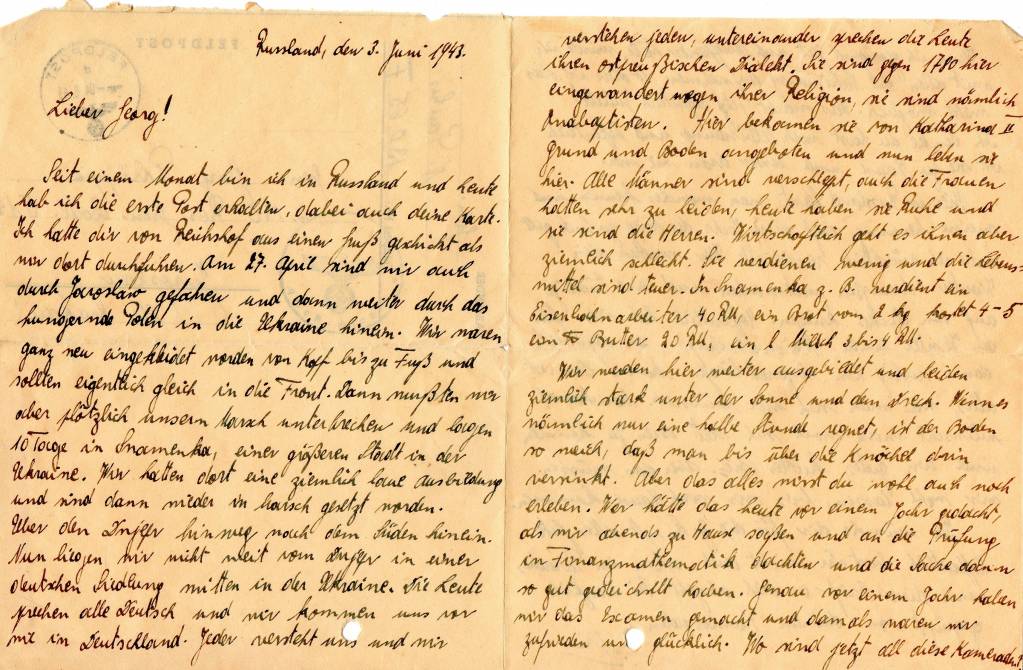 Russland, den 3. Juni 1943.
Lieber Georg!
Seit einem Monat bin ich in Russland und heute
hab ich die erste Post erhalten, dabei auch deine Karte.
Ich hatte dir von Reichshof aus einen Gruß geschickt als
wir dort durchfuhren. Am 27. April sind wir auch
durch Jaroslaw gefahren und dann weiter durch das
hungernde Polen in die Ukraine hinein. Wir waren
ganz neu eingekleidet worden von Kopf bis zu Fuß und
sollten eigentlich gleich in die Front. Dann mußten wir
aber plötzlich unsern Marsch unterbrechen und lagen
10 Tage in Snamenka, einer größeren Stadt in der
Ukraine. Wir hatten dort eine ziemlich laue Ausbildung
und sind dann wieder in Marsch gesetzt worden.
Über den Dnjepr hinweg nach dem Süden hinein.
Nun liegen wir nicht weit vom Dnjepr in einer
deutschen Siedlung mitten in der Ukraine. Die Leute
sprechen alle Deutsch und wir kommen uns vor
wie in Deutschland. Jeder versteht uns und wir
verstehen jeden, untereinander sprechen die Leute
ihren ostpreußischen Dialekt. Sie sind gegen 1780 hier
eingewandert wegen ihrer Religion, sie sind nämlich
Anabaptisten. Hier bekamen sie von Katharina II
Grund und Boden angeboten und nun leben sie
hier. Alle Männer sind verschleppt, auch die Frauen
hatten sehr zu leiden, heute haben sie Ruhe und
sie sind die Herren. Wirtschaftlich geht es ihnen aber
ziemlich schlecht. Sie verdienen wenig und die Lebens-
mittel sind teuer. In Snamenka z. B. verdient ein
Eisenbahnarbeiter 40 RM, ein Brot vom 2 kg kostet 4-5
ein Butter 20 RM, ein l Milch 3 bis 4 RM.
Wir werden hier weiter ausgebildet und leiden
ziemlich stark unter der Sonne und dem Dreck. Wenn es
nämlich nur eine halbe Stunde regnet, ist der Boden
so weich, daß man bis über die Knöchel drin
versinkt. Aber das alles wirst du wohl auch noch
erleben. Wer hätte das heute vor einem Jahr gedacht,
als wir abends zu Hause saßen und an die Prüfung
in Finanzmathematik dachten und die Sache dann
so gut gedeichselt haben. Genau vor einem Jahr haben
wir das Examen gemacht und damals waren wir
zufrieden und glücklich. Wo sind jetzt all diese Kameraden?
FELDPOST